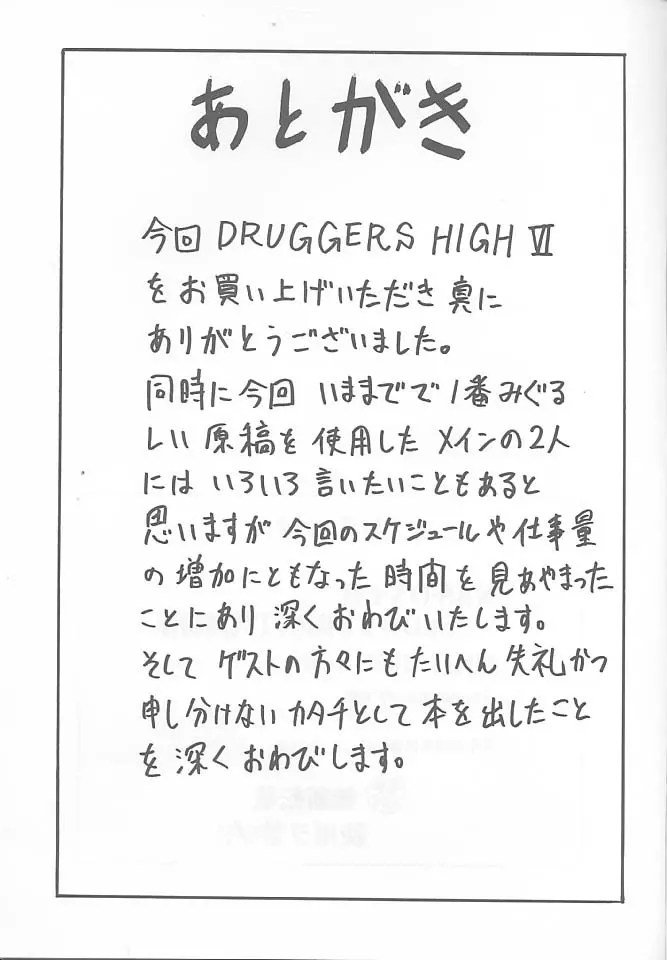 あとがき
今回 DRUGGERS HIGH Ⅵ
をお買い上げいただき 真に
ありがとうございました。
同時に今回 いままでで 1番みぐる
しい 原稿を 使用した メインの2人
には いろいろ 言いたいこともあると
思いますが 今回のスケジュールや仕事量
の 増加にともなった 時間を 見あやまった
ことにあり 深く おわびいたします。
そして ゲストの方々にも たいへん 失礼かつ
申し分けない カタチとして 本を 出したこと
を 深く おわびします。